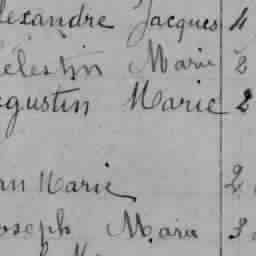 lexandre Jacques 4
élestin Marie 2
ugustin Marie 2
an Marie 2
oseph Marie 3